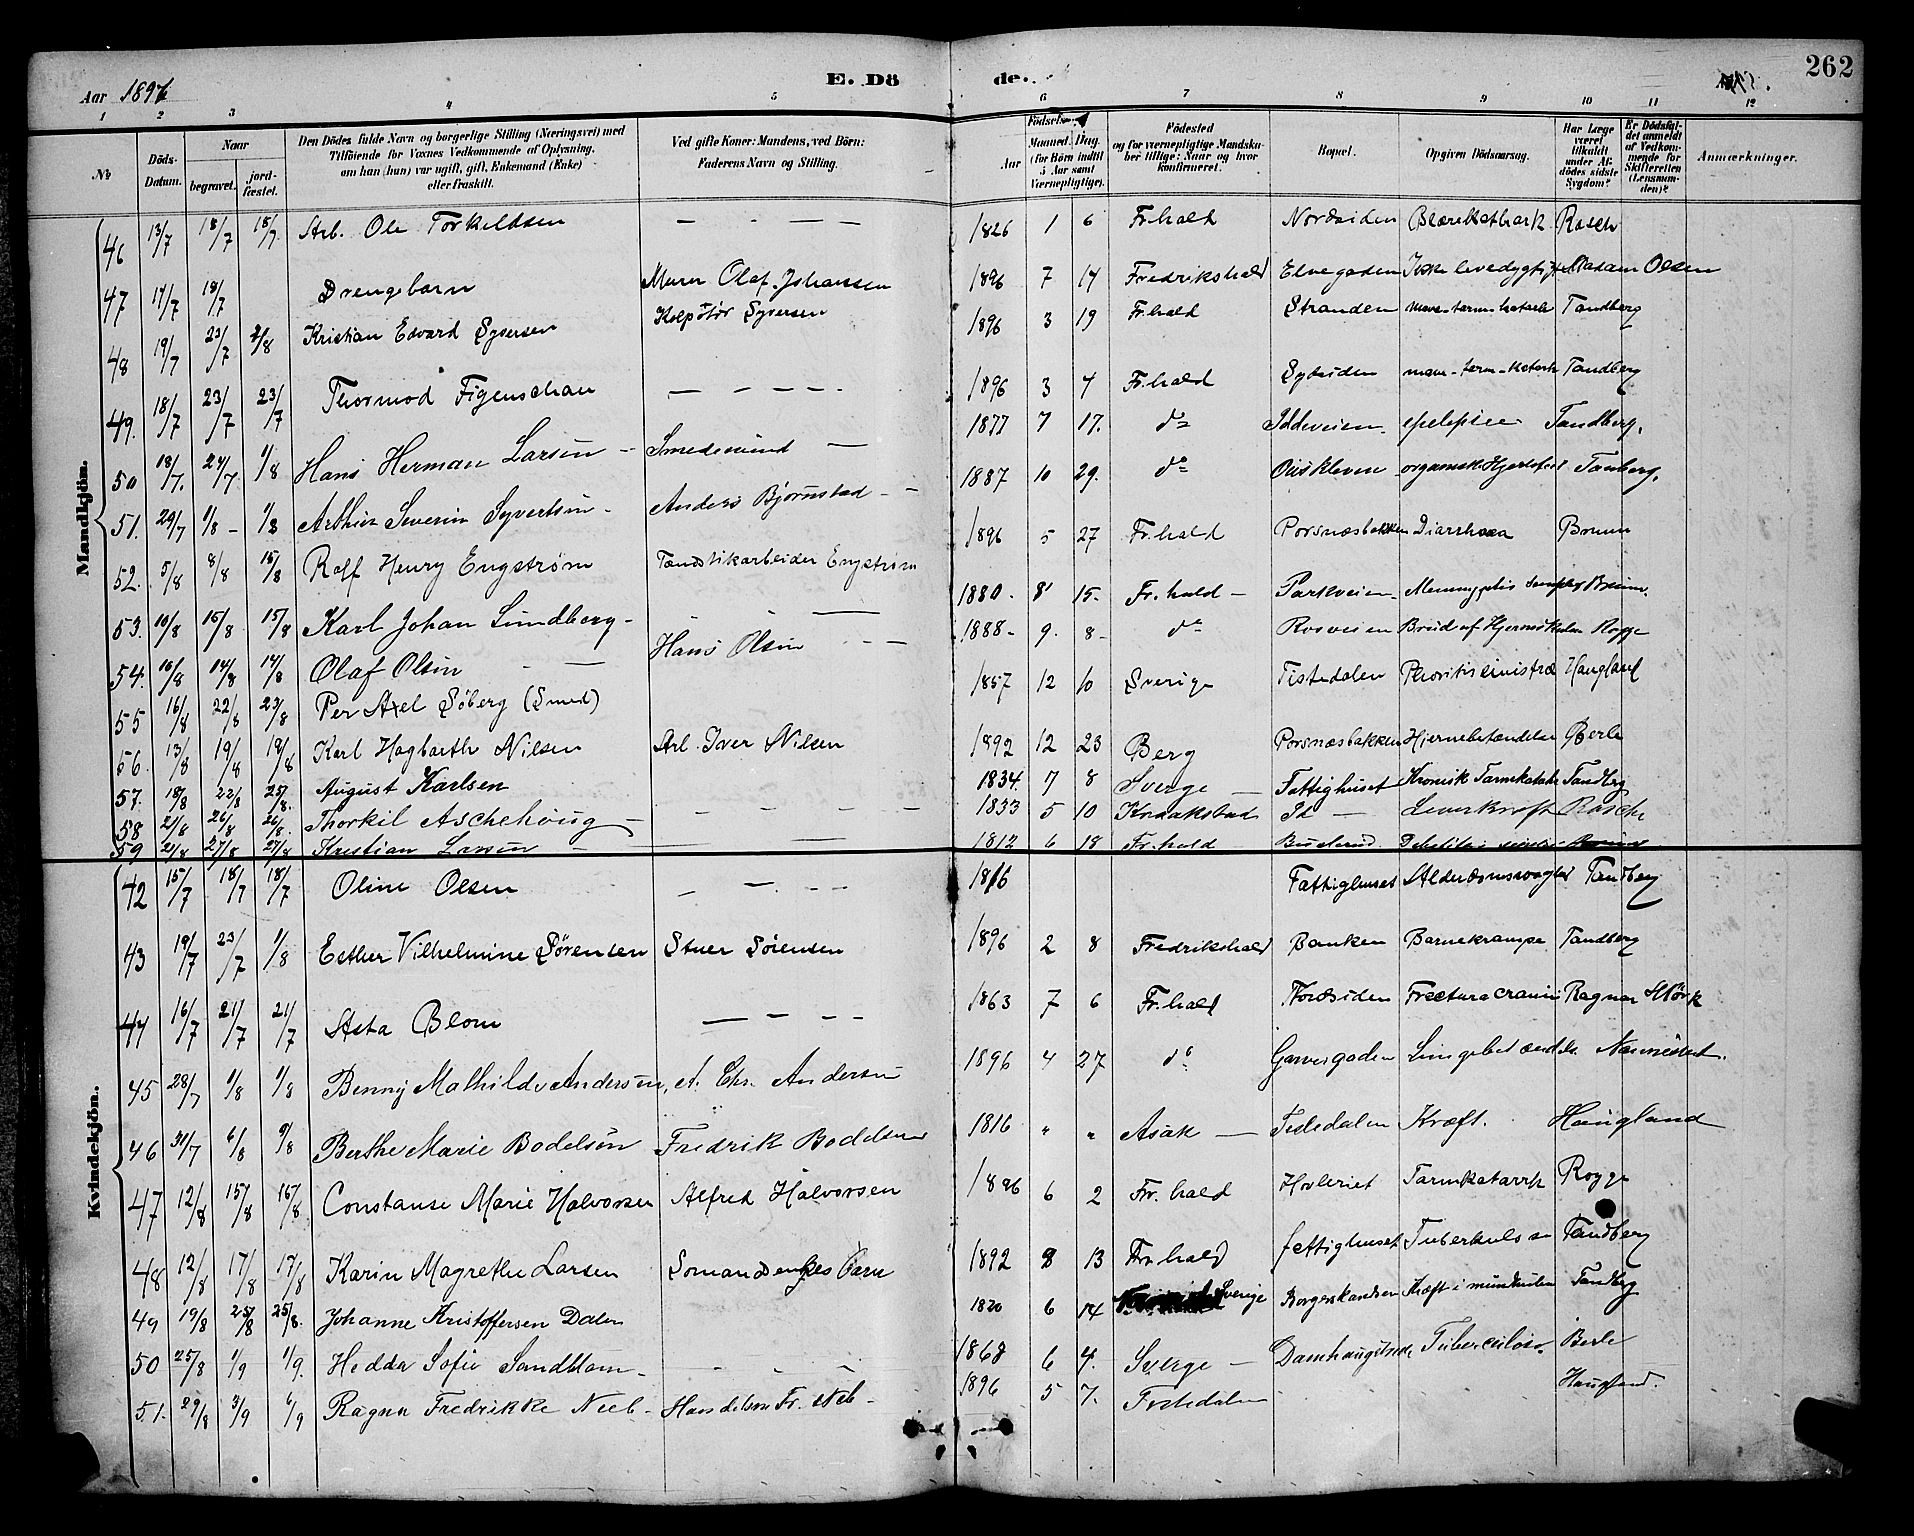 262
Aar 1896
E. Döde.
1 2 3 4 5 6 7 8 9 10 11 12
No
Döds-Datum.
Naar begravet. jordfæstet.
Den Dödes fulde Navn og borgerlige Stilling (Næringsvei) med Tilföiende for Voxnes Vedkommende af Oplysning, om han (hun) var ugift, gift, Enkemand (Enke) eller fraskilt.
Ved gifte Koner: Mandens, ved Börn: Faderens Navn og Stilling.
Födsels-
Aar Maaned. Dag. (for Börn indtil 5 Aar samt Værnepligtige).
Födested og for værnepligtige Mandskaber tillige: Naar og hvor konfirmeret.
Bopæl.
Opgiven Dödsaarsag.
Har Læge været tilkaldt under Afdödes sidste Sygdom?
Er Dödsfaldet anmeldt af Vedkommende for Skifteretten (Lensmanden)?
Anmærkninger.
Mandkjön.
46 13/7 18/7 18/7. Arb. Ole Torkildsen — - — — 1826 1 6 Fr.hald Nordsiden Blærekatharh Rasch
47 17/7 18/7 Drengebarn Murer Olaf Johanssen 1896 7 17 Fredrikshald Elvegaden Ikke levedygtigt Madam Olsen
48 19/7 23/7 2/8 Kristian Edvard Syversen Kolpotör Syversen 1896 3 19 Fr.hald Stranden mave-tarm-katarh Tandberg
49. 18/7 23/7 23/7 Thormod Figenschau — — — — 1896 3 4 Fr.hald Sydsiden mave-tarm-katarh Tandberg
50 18/7. 24/7 1/8 Hans Herman Larsen — Smedesvend — 1877 7 17. do Iddeveien epelepsie Tandberg.
51. 29/7 1/8 - 1/8 Arthur Severin Syvertsen - Anders Bjørnstad - - 1887 10 29. do organisk Hjertefeil Tanberg.
52. 5/8 8/8 15/8 Rolf Henry Engström Tændstikarbeider Engström 1896 5 27 Fr.hald Porsnæsbakken Diarrhoea Bruun
53. 10/8 15/8 15/8 Karl Johan Lundberg - - - — 1880. 8 15. Fr.hald - Parkveien Bruun.
54. 10/8 14/8 14/8 Olaf Olsen - — Hans Olsen - - 1888. 9. 8 do Rosveien Brud af Rogge
55 16/8 22/8 23/8 Per Axel Söberg (Smed) 1857 12 10 Sverige Tistedalen Haugland
56. 13/8 19/8 19/8 Karl Hagbarth Nilsen Arb. Iver Nilsen 1892 12 23 Berg Porsnæsbakken Hjernebetændelse Berle
57. 18/8 22/8 25/8. August Karlsen 1834. 7 8 Sverge - Fattighuset Kronisk Tarmkatarh Tandberg
58 21/8 26/8 26/8. Thorkil Aschehoug — - - - 1833 5 10 Kraakstad Id — Leverkræft Rasch
59 21/8 27/8 27/8 Kristian Larsen - — 1812 6 18 Fr.hald
Kvindekjön.
42 15/7 18/7 18/7 Oline Olsen — — - - 1816 Fattighuset Alderdomssvaghed Tandberg
43 19/7 23/7 1/8 Esther Vilhelmine Sörensen Stuer Sörensen 1896 2 8 Fredrikshald Banken Barnekrampe Tandberg
44 16/7 21/7 21/7 Asta Blom — — — - 1863 7 6 Fr.hald Nordsiden Fractura cranii Ragnar Störk
45 28/7 1/8 1/8 Benny Mathilde Andersen, A. Chr. Andersen 1896 4 27 do Garvergaden Lungebetændelse
46 31/7 6/8 9/8 Berthe Marie Bodelsen Fredrik Bodelsen 1816 " " Asak — Tistedalen Kræft. Haugland
47 12/8 15/8 16/8 Constanse Marie Halvorsen Alfred Halvorsen 1896 6 2 Fr.hald Hovleriet Tarmkatarrh Rogge
48 12/8 17/8 17/8 Karin Magrethe Larsen Somandsenkes Barn 1892 8 13 Fr.hald fattighuset Tuberkulose Tandberg
49 19/8 25/8 25/8. Johanne Kristoffersen Dalen 1820 6 14 Sverige Borgerskansen Kræft i mundhulen Tandberg
50 25/8 1/9 1/9. Hedda Sofie Sandblom - - - - 1868 6 4. Sverge — Tuberculose Berle
51. 29/8 3/9 6/9 Ragna Fredrikke Neeb - Handelsm Fr. Neb - 1896 5 7. Tistedalen Haugland.